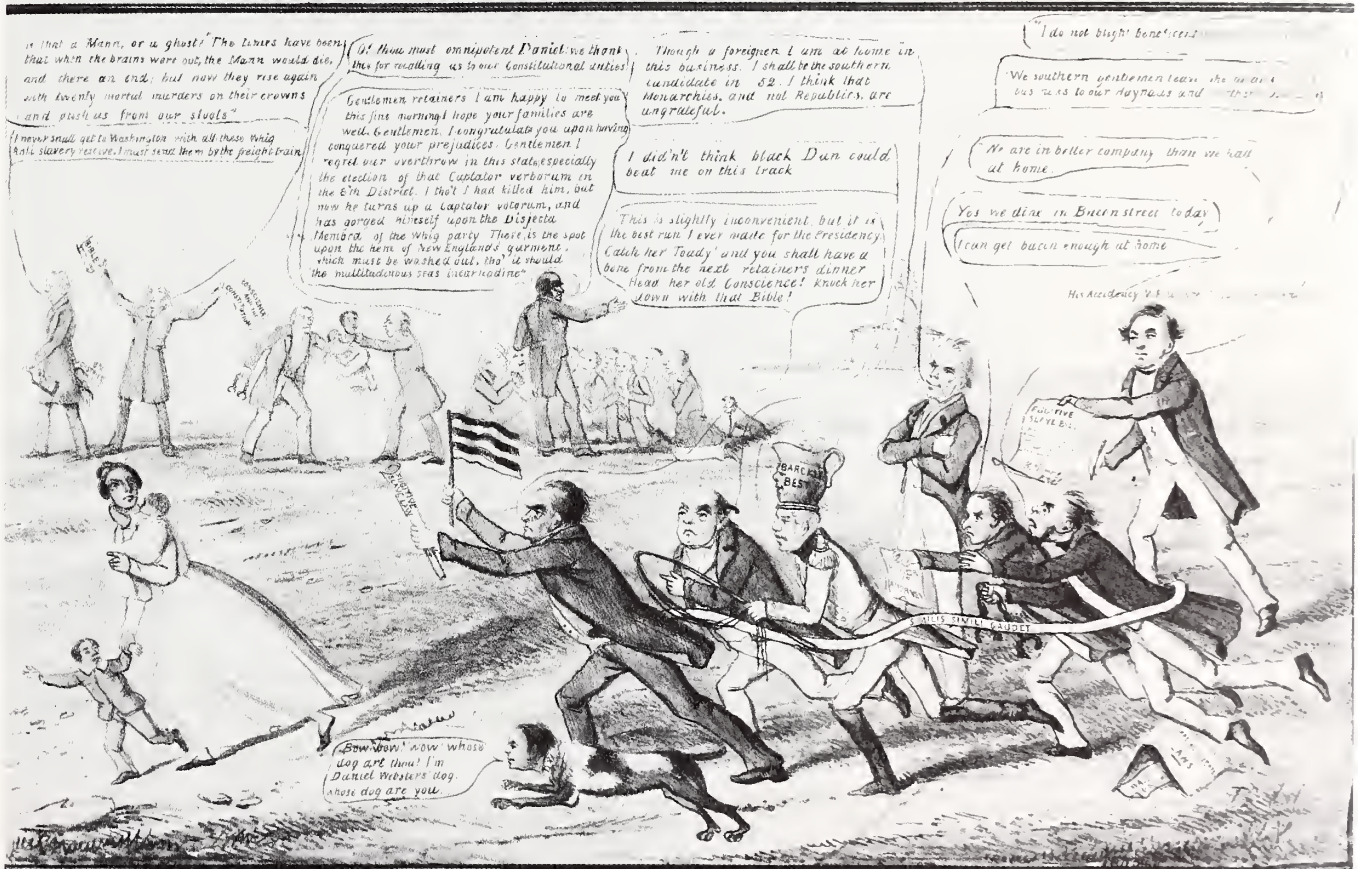 is that a Mann, or a ghost? "The times have been
that when the brains were out, the Mann would die,
and there an end; but now they rise again
with twenty mortal murders on their crowns
and push us from our stools"
I never shall get to Washington with all these Whig
Anti slavery resolve. I must send them by the freight train
O! thou most omnipotent Daniel: we thank
thee for recalling us to our Constitutional duties
Gentlemen retainers I am happy to meet you
this fine morning I hope your families are
well. Gentlemen, I congratulate you upon having
conquered your prejudices. Gentlemen I
regret our overthrow in this state, especially
the election of that Captator verborum in
the 8th District. I tho't I had killed him, but
now he turns up a Captator votorum, and
has gorged himself upon the Disjecta
Membra of the Whig party There, is the spot
upon the hem of New England's garment.
which must be washed out, tho' it should
the multitudinous seas incarnadine"
Though a foreigner I am at home in
this business. I shall be the southern
candidate in 52. I think that
Monarchies, and not Republics, are
ungrateful.
I didn't think black Dan could
beat me on this track
This is slightly inconvenient, but it is
the best run I ever made for the Presidency
Catch her Toady and you shall have a
bone from the next retainers dinner
Head her old Conscience! Knock her
down with that Bible!
"I do not blight benefices
We southern gentlemen leave
to our
We are in better company than we had
at home.
Yes we dine in Beacon street today
I can get bacon enough at home
His Accidency
BIBLE
CONSCIENCE
AND THE
CONSTITUTION
FUGITIVE
SLAVE BILL
BARCLAY'S
BEST
SIMILIS SIMILI GAUDET
Bow-wow! wow whose
dog art thou! I'm
Daniel Webster's dog.
whose dog are you.